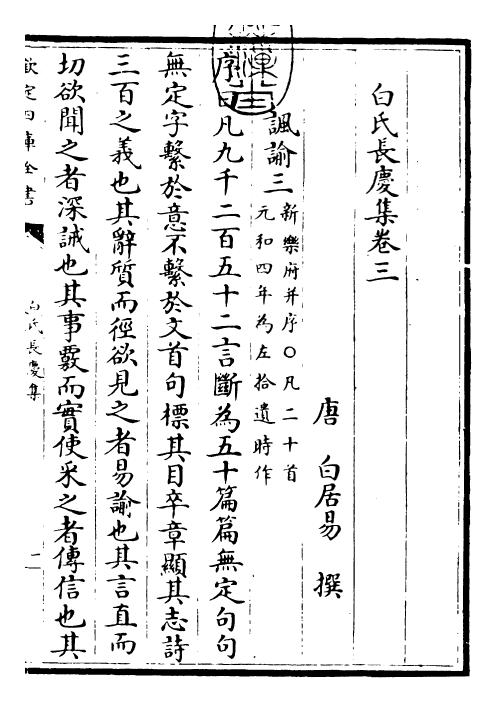 白氏長慶集卷三
唐 白居易 撰
諷諭三
新樂府并序○凡二十首
元和四年為左拾遺時作
序曰凡九千二百五十二言斷為五十篇篇無定句句
無定字繫於意不繫於文首句標其目卒章顯其志詩
三百之義也其辭質而徑欲見之者易諭也其言直而
切欲聞之者深誡也其事覈而實使采之者傳信也其
欽定四庫全書
白氏長慶集